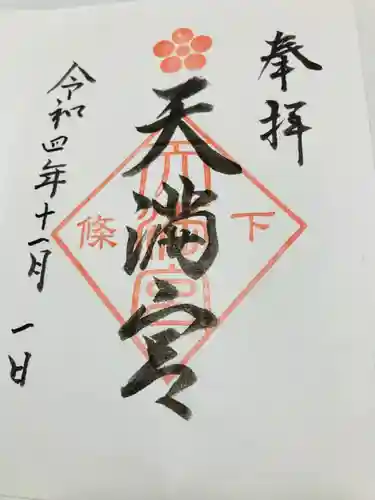 奉拝
天満宮
下條
天満宮
令和四年十一月一日